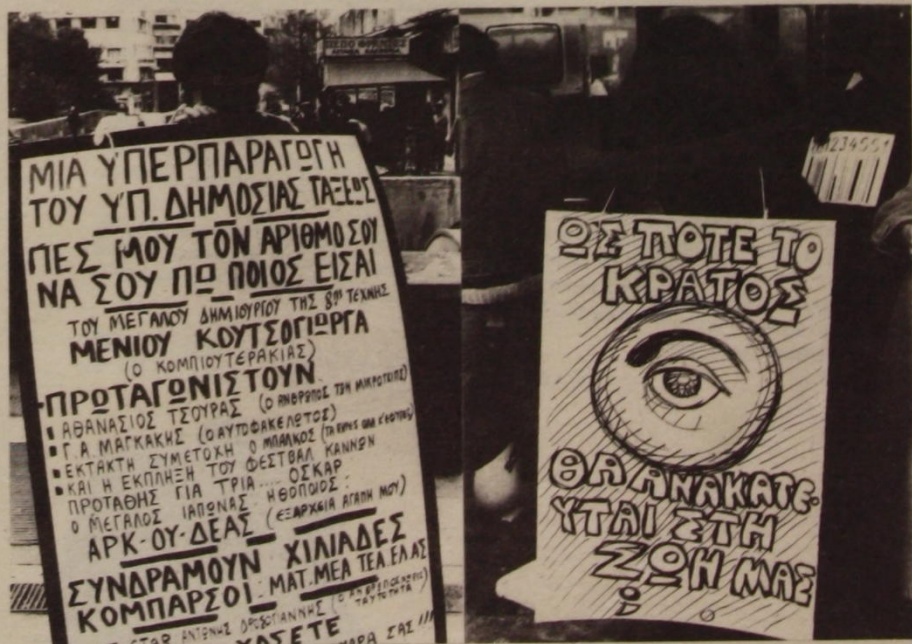 ΜΙΑ ΥΠΕΡΠΑΡΑΓΩΓΗ
ΤΟΥ ΥΠ. ΔΗΜΟΣΙΑΣ ΤΑΞΕΩΣ
ΠΕΣ ΜΟΥ ΤΟΝ ΑΡΙΘΜΟ ΣΟΥ
ΝΑ ΣΟΥ ΠΩ ΠΟΙΟΣ ΕΙΣΑΙ
ΤΟΥ ΜΕΓΑΛΟΥ ΔΗΜΙΟΥΡΓΟΥ ΤΗΣ 8ης ΤΕΧΝΗΣ
ΜΕΝΙΟΥ ΚΟΥΤΣΟΓΙΩΡΓΑ
(Ο ΚΟΜΠΙΟΥΤΕΡΑΚΙΑΣ)
ΠΡΩΤΑΓΩΝΙΣΤΟΥΝ
ΑΘΑΝΑΣΙΟΣ ΤΣΟΥΡΑΣ (Ο ΑΝΘΡΩΠΟΣ ΤΩΝ
Γ.Α. ΜΑΓΚΑΚΗΣ (Ο ΑΥΤΟΦΑΚΕΛΩΤΟΣ)
ΕΚΤΑΚΤΗ ΣΥΜΕΤΟΧΗ Ο ΜΠΑΛΚΟΣ
ΚΑΙ Η ΕΚΠΛΗΞΗ ΤΟΥ ΦΕΣΤΒΑΛ ΚΑΝΝΩΝ
ΠΡΟΤΑΘΗΣ ΓΙΑ ΤΡΙΑ.... ΟΣΚΑΡ
Ο ΜΕΓΑΛΟΣ ΙΑΠΩΝΑΣ ΗΘΟΠΟΙΟΣ:
ΑΡΚ-ΟΥ-ΔΕΑΣ (ΕΞΑΡΧΕΙΑ ΑΓΑΠΗ ΜΟΥ)
ΣΥΝΔΡΑΜΟΥΝ ΧΙΛΙΑΔΕΣ
ΚΟΜΠΑΡΣΟΙ. ΜΑΤ. ΜΕΑ ΤΕΛ. ΕΛ.ΑΣ
ΑΝΤΩΝΗΣ ΔΡΟΣΟΓΙΑΝΝΗΣ
ΧΑΣΕΤΕ
ΣΑΣ!!!
ΩΣ ΠΟΤΕ ΤΟ
ΚΡΑΤΟΣ
ΘΑ ΑΝΑΚΑΤΕ-
ΥΤΑΙ ΣΤΗ
ΖΩΗ ΜΑΣ
;